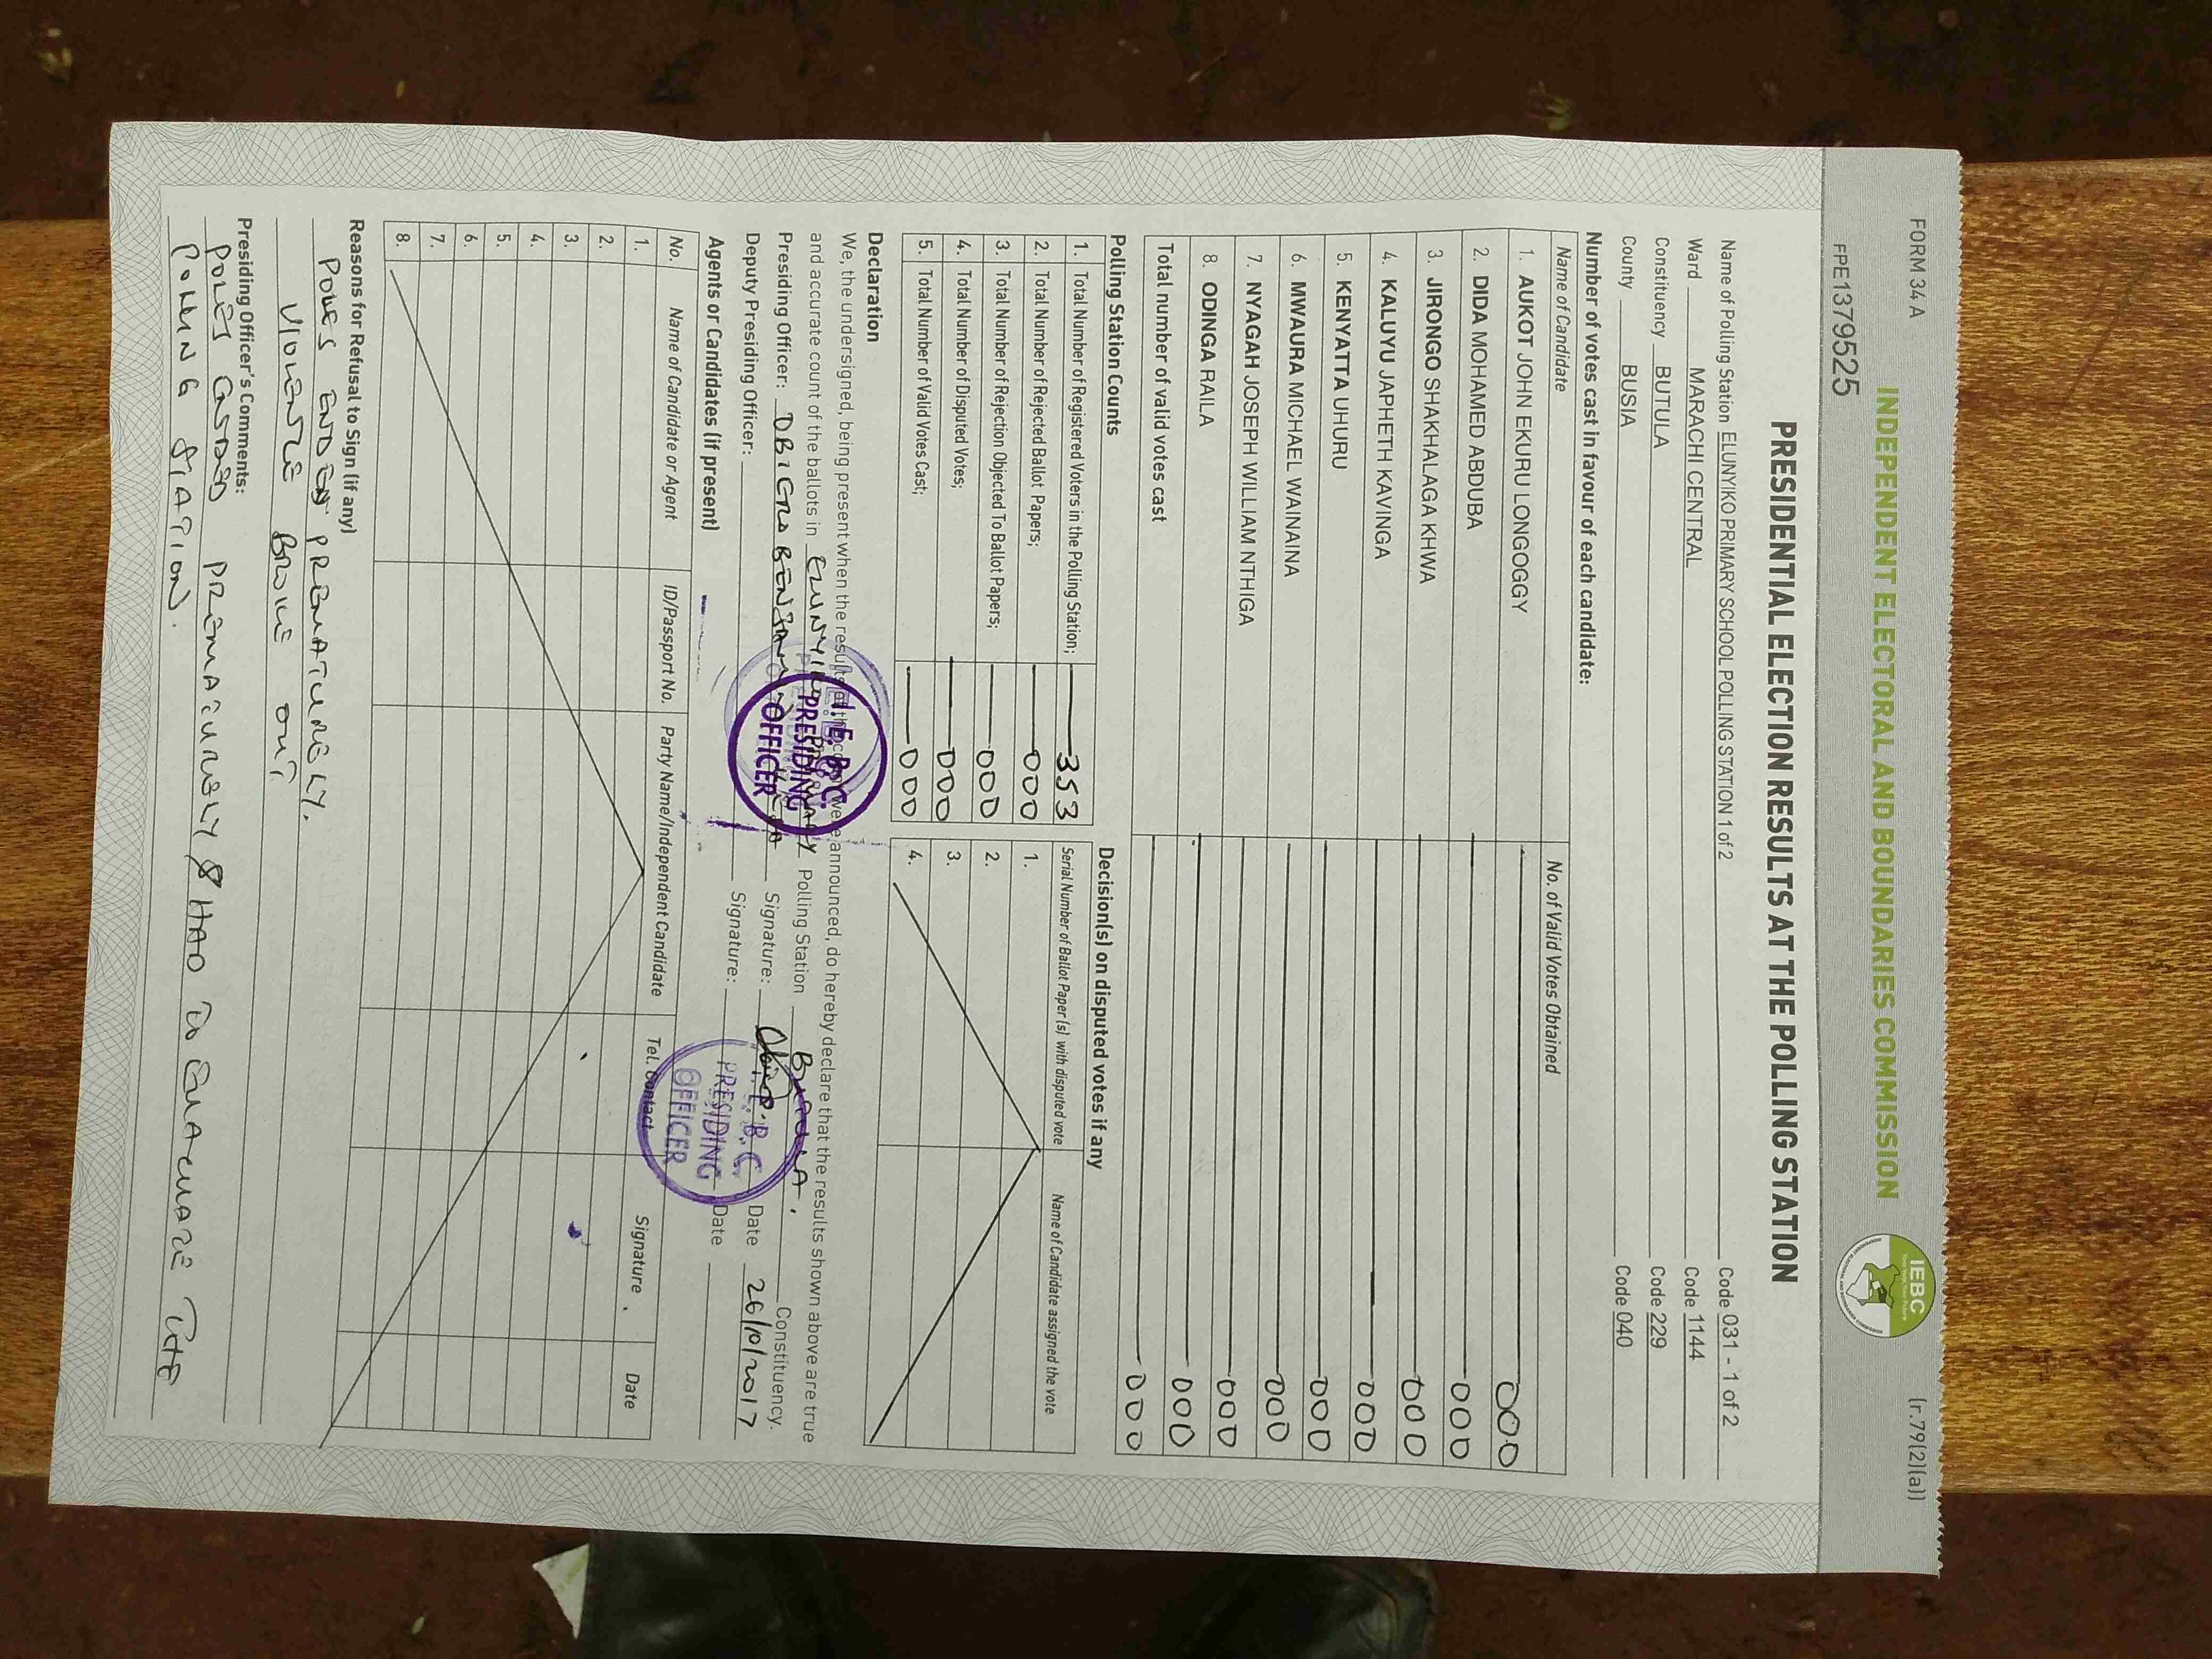 FORM 34 A
(r.79(2)(a))
INDEPENDENT ELECTORAL AND BOUNDARIES COMMISSION
IEBC
FPE1379525
PRESIDENTIAL ELECTION RESULTS AT THE POLLING STATION
Name of Polling Station ELUNYIKO PRIMARY SCHOOL POLLING STATION 1 of 2 Code 031 - 1 of 2
Ward MARACHI CENTRAL Code 1144
Constituency BUTULA Code 229
County BUSIA Code 040
Number of votes cast in favour of each candidate:
Name of Candidate No. of Valid Votes Obtained
1. AUKOT JOHN EKURU LONGOGGY 000
2. DIDA MOHAMED ABDUBA 000
3. JIRONGO SHAKHALAGA KHWA 000
4. KALUYU JAPHETH KAVINGA 000
5. KENYATTA UHURU 000
6. MWAURA MICHAEL WAINAINA 000
7. NYAGAH JOSEPH WILLIAM NTHIGA 000
8. ODINGA RAILA 000
Total number of valid votes cast 000
Polling Station Counts
1. Total Number of Registered Voters in the Polling Station; 353
2. Total Number of Rejected Ballot Papers; 000
3. Total Number of Rejection Objected To Ballot Papers; 000
4. Total Number of Disputed Votes; 000
5. Total Number of Valid Votes Cast; 000
Decision(s) on disputed votes if any
Serial Number of Ballot Paper (s) with disputed vote Name of Candidate assigned the vote
1.
2.
3.
4.
Declaration
We, the undersigned, being present when the results of the count were announced, do hereby declare that the results shown above are true
and accurate count of the ballots in ELUNYIKO PRIMARY Polling Station BUTULA, Constituency.
Presiding Officer: OBIERO BENJAMIN Signature: Date 26/10/2017
Deputy Presiding Officer: Signature: Date
I.E.B.C.
PRESIDING
OFFICER
I.E.B.C.
PRESIDING
OFFICER
Agents or Candidates (if present)
No. Name of Candidate or Agent ID/Passport No. Party Name/Independent Candidate Tel. Contact Signature Date
1.
2.
3.
4.
5.
6.
7.
8.
Reasons for Refusal to Sign (if any)
POLLS ENDED PREMATURELY.
VIOLENCE BROKE OUT
Presiding Officer's Comments:
POLLS ENDED PREMATURELY & HAD TO EVACUATE THE
POLLING STATION.